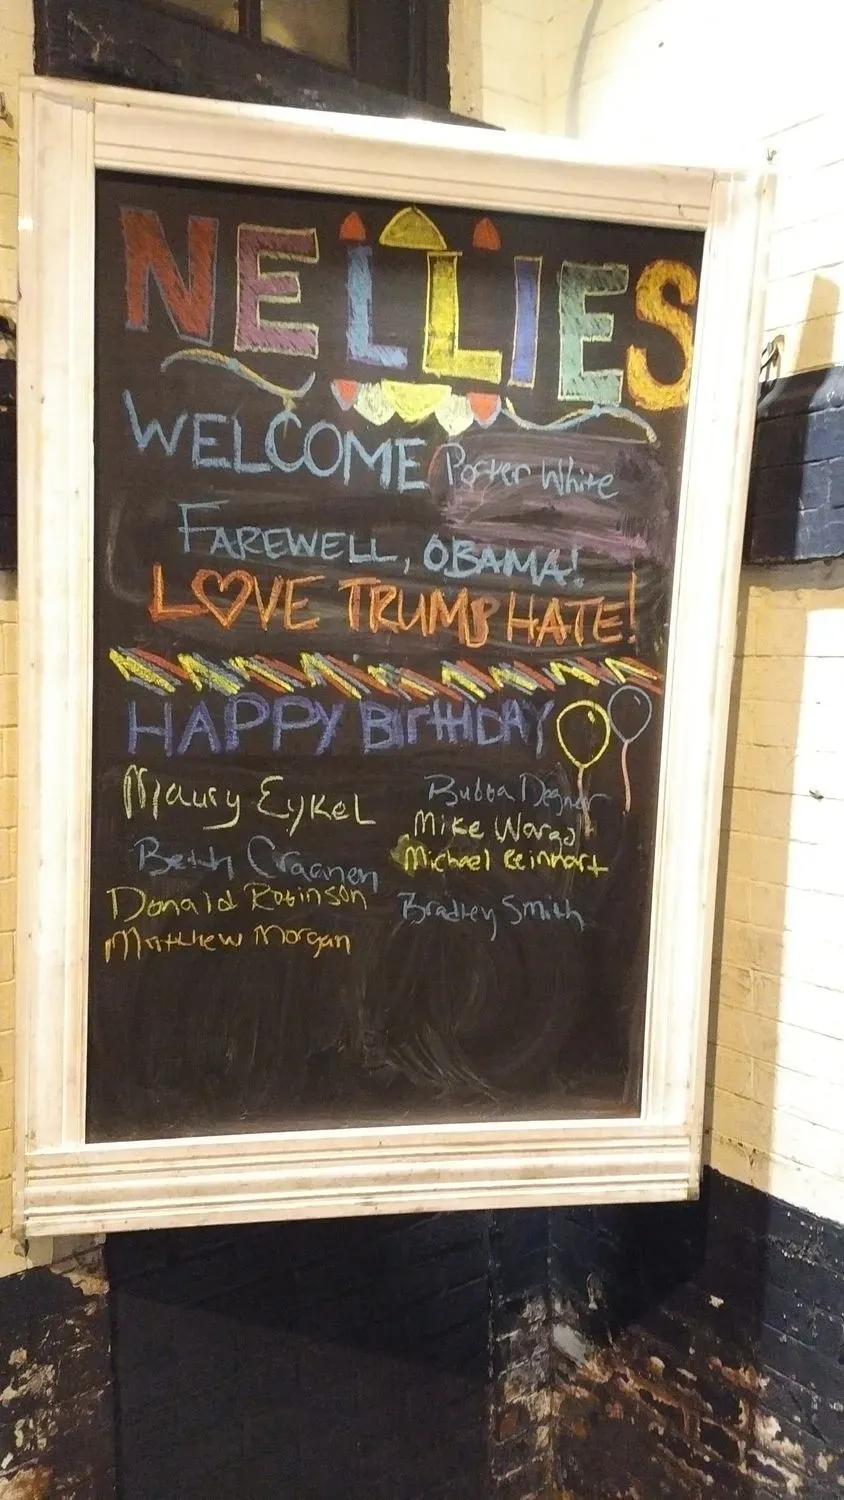 NELLIES
WELCOME Porter White
FAREWELL, OBAMA!
LOVE TRUMP HATE!
HAPPY BIRTHDAY
Maury Eykel
Beth Craanen
Donald Robinson
Matthew Morgan
Bubba Degner
Mike Wargo
Michael Reinhart
Bradley Smith